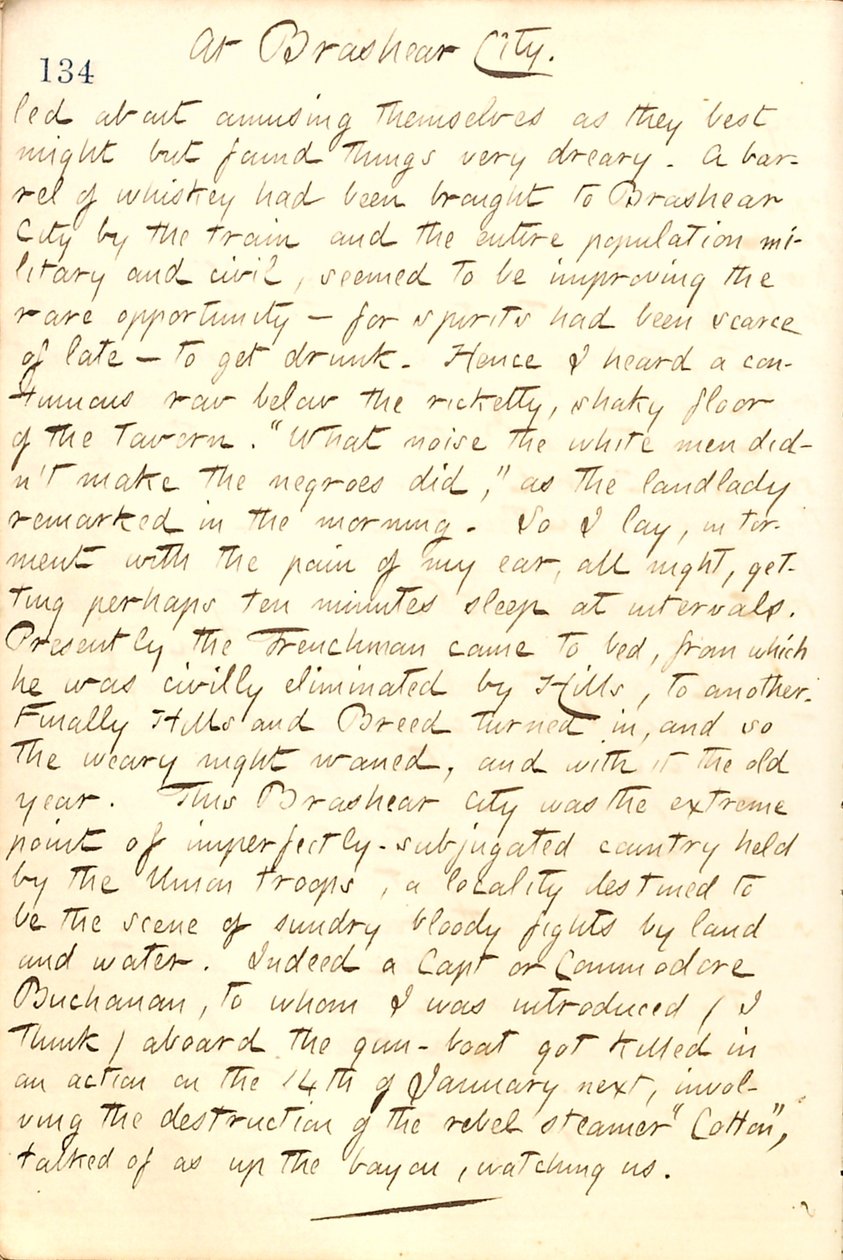 At Brashear City.
134
led about amusing themselves as they best
might but found things very dreary. A bar-
rel of whiskey had been brought to Brashear
City by the train and the entire population mi-
litary and civil, seemed to be improving the
rare opportunity — for spirits had been scarce
of late — to get drunk. Hence I heard a con-
tinuous row below the ricketty, shaky floor
of the Tavern. "What noise the white men did-
n't make the negroes did," as the landlady
remarked in the morning. So I lay, in tor-
ment with the pain of my ear, all night, get-
ting perhaps ten minutes sleep at intervals.
Presently the Frenchman came to bed, from which
he was civilly eliminated by Hills, to another.
Finally Hills and Breed turned in, and so
the weary night waned, and with it the old
year. This Brashear City was the extreme
point of imperfectly-subjugated country held
by the Union troops, a locality destined to
be the scene of sundry bloody fights by land
and water. Indeed a Capt or Commodore
Buchanan, to whom I was introduced / I
think / aboard the gun-boat got killed in
an action on the 14th of January next, invol-
ving the destruction of the rebel steamer "Cotton",
talked of as up the bayou, watching us.